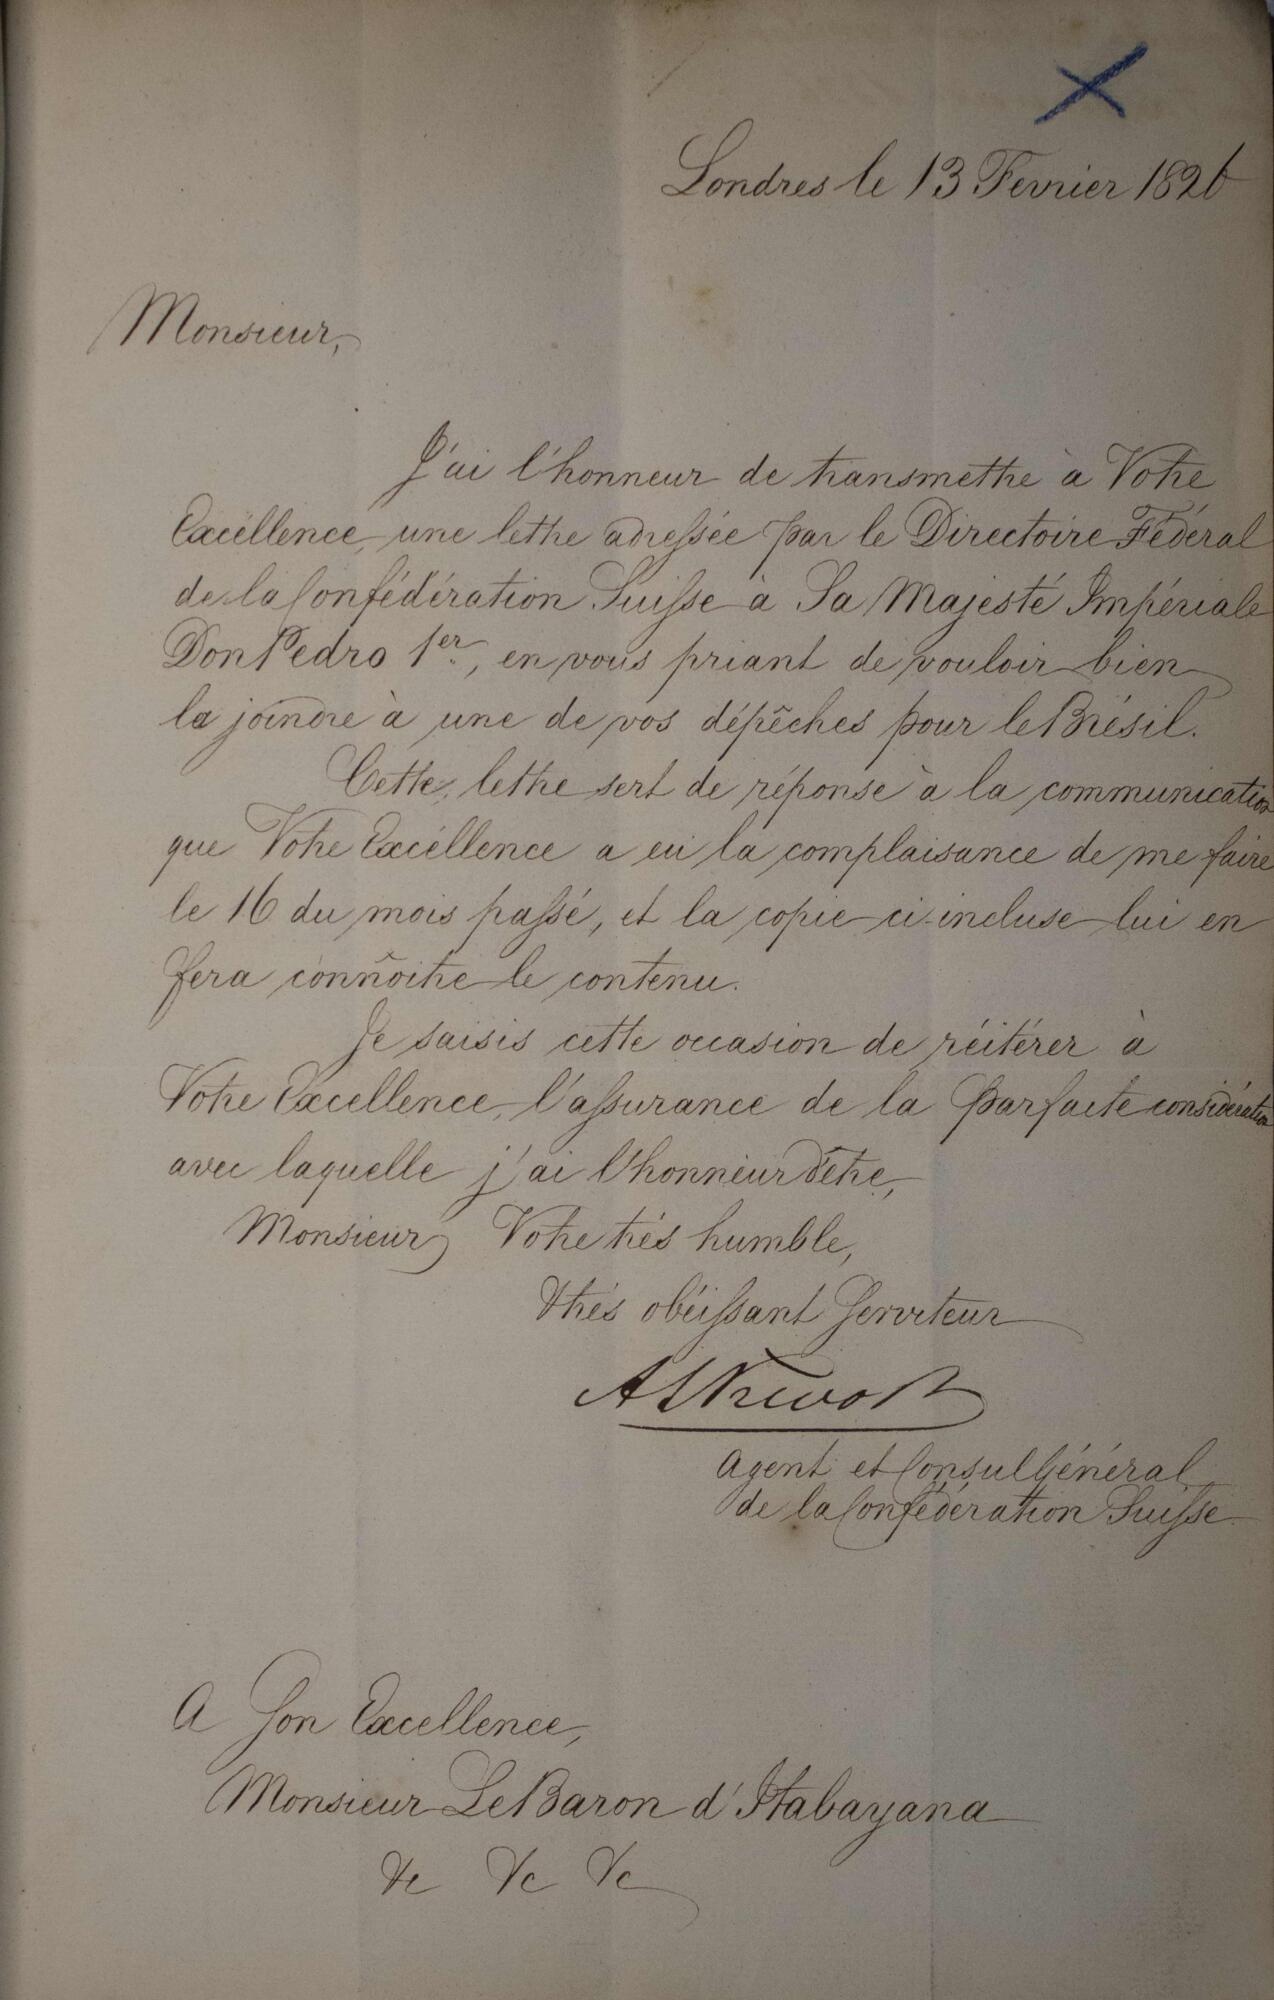 Londres le 13 Fevrier 1826
Monsieur,
J'ai l'honneur de transmettre à Votre
Excellence, une lettre adressée par le Directoire Fédéral
de la Confédération Suisse à Sa Majesté Impériale
Don Pedro 1er., en vous priant de vouloir bien
la joindre à une de vos dépêches pour le Brésil.
Cette lettre sert de réponse à la communication
que Votre Excellence a eu la complaisance de me faire
le 16 du mois passé, et la copie ci-incluse lui en
fera connoitre le contenu.
Je saisis cette occasion de réitérer à
Votre Excellence, l'assurance de la parfaite considération
avec laquelle j'ai l'honneur d'être,
Monsieur, Votre très humble,
& très obéissant Serviteur
Agent et Consul Général
de la Confédération Suisse
A Son Excellence,
Monsieur Le Baron d'Itabayana
&c &c &c